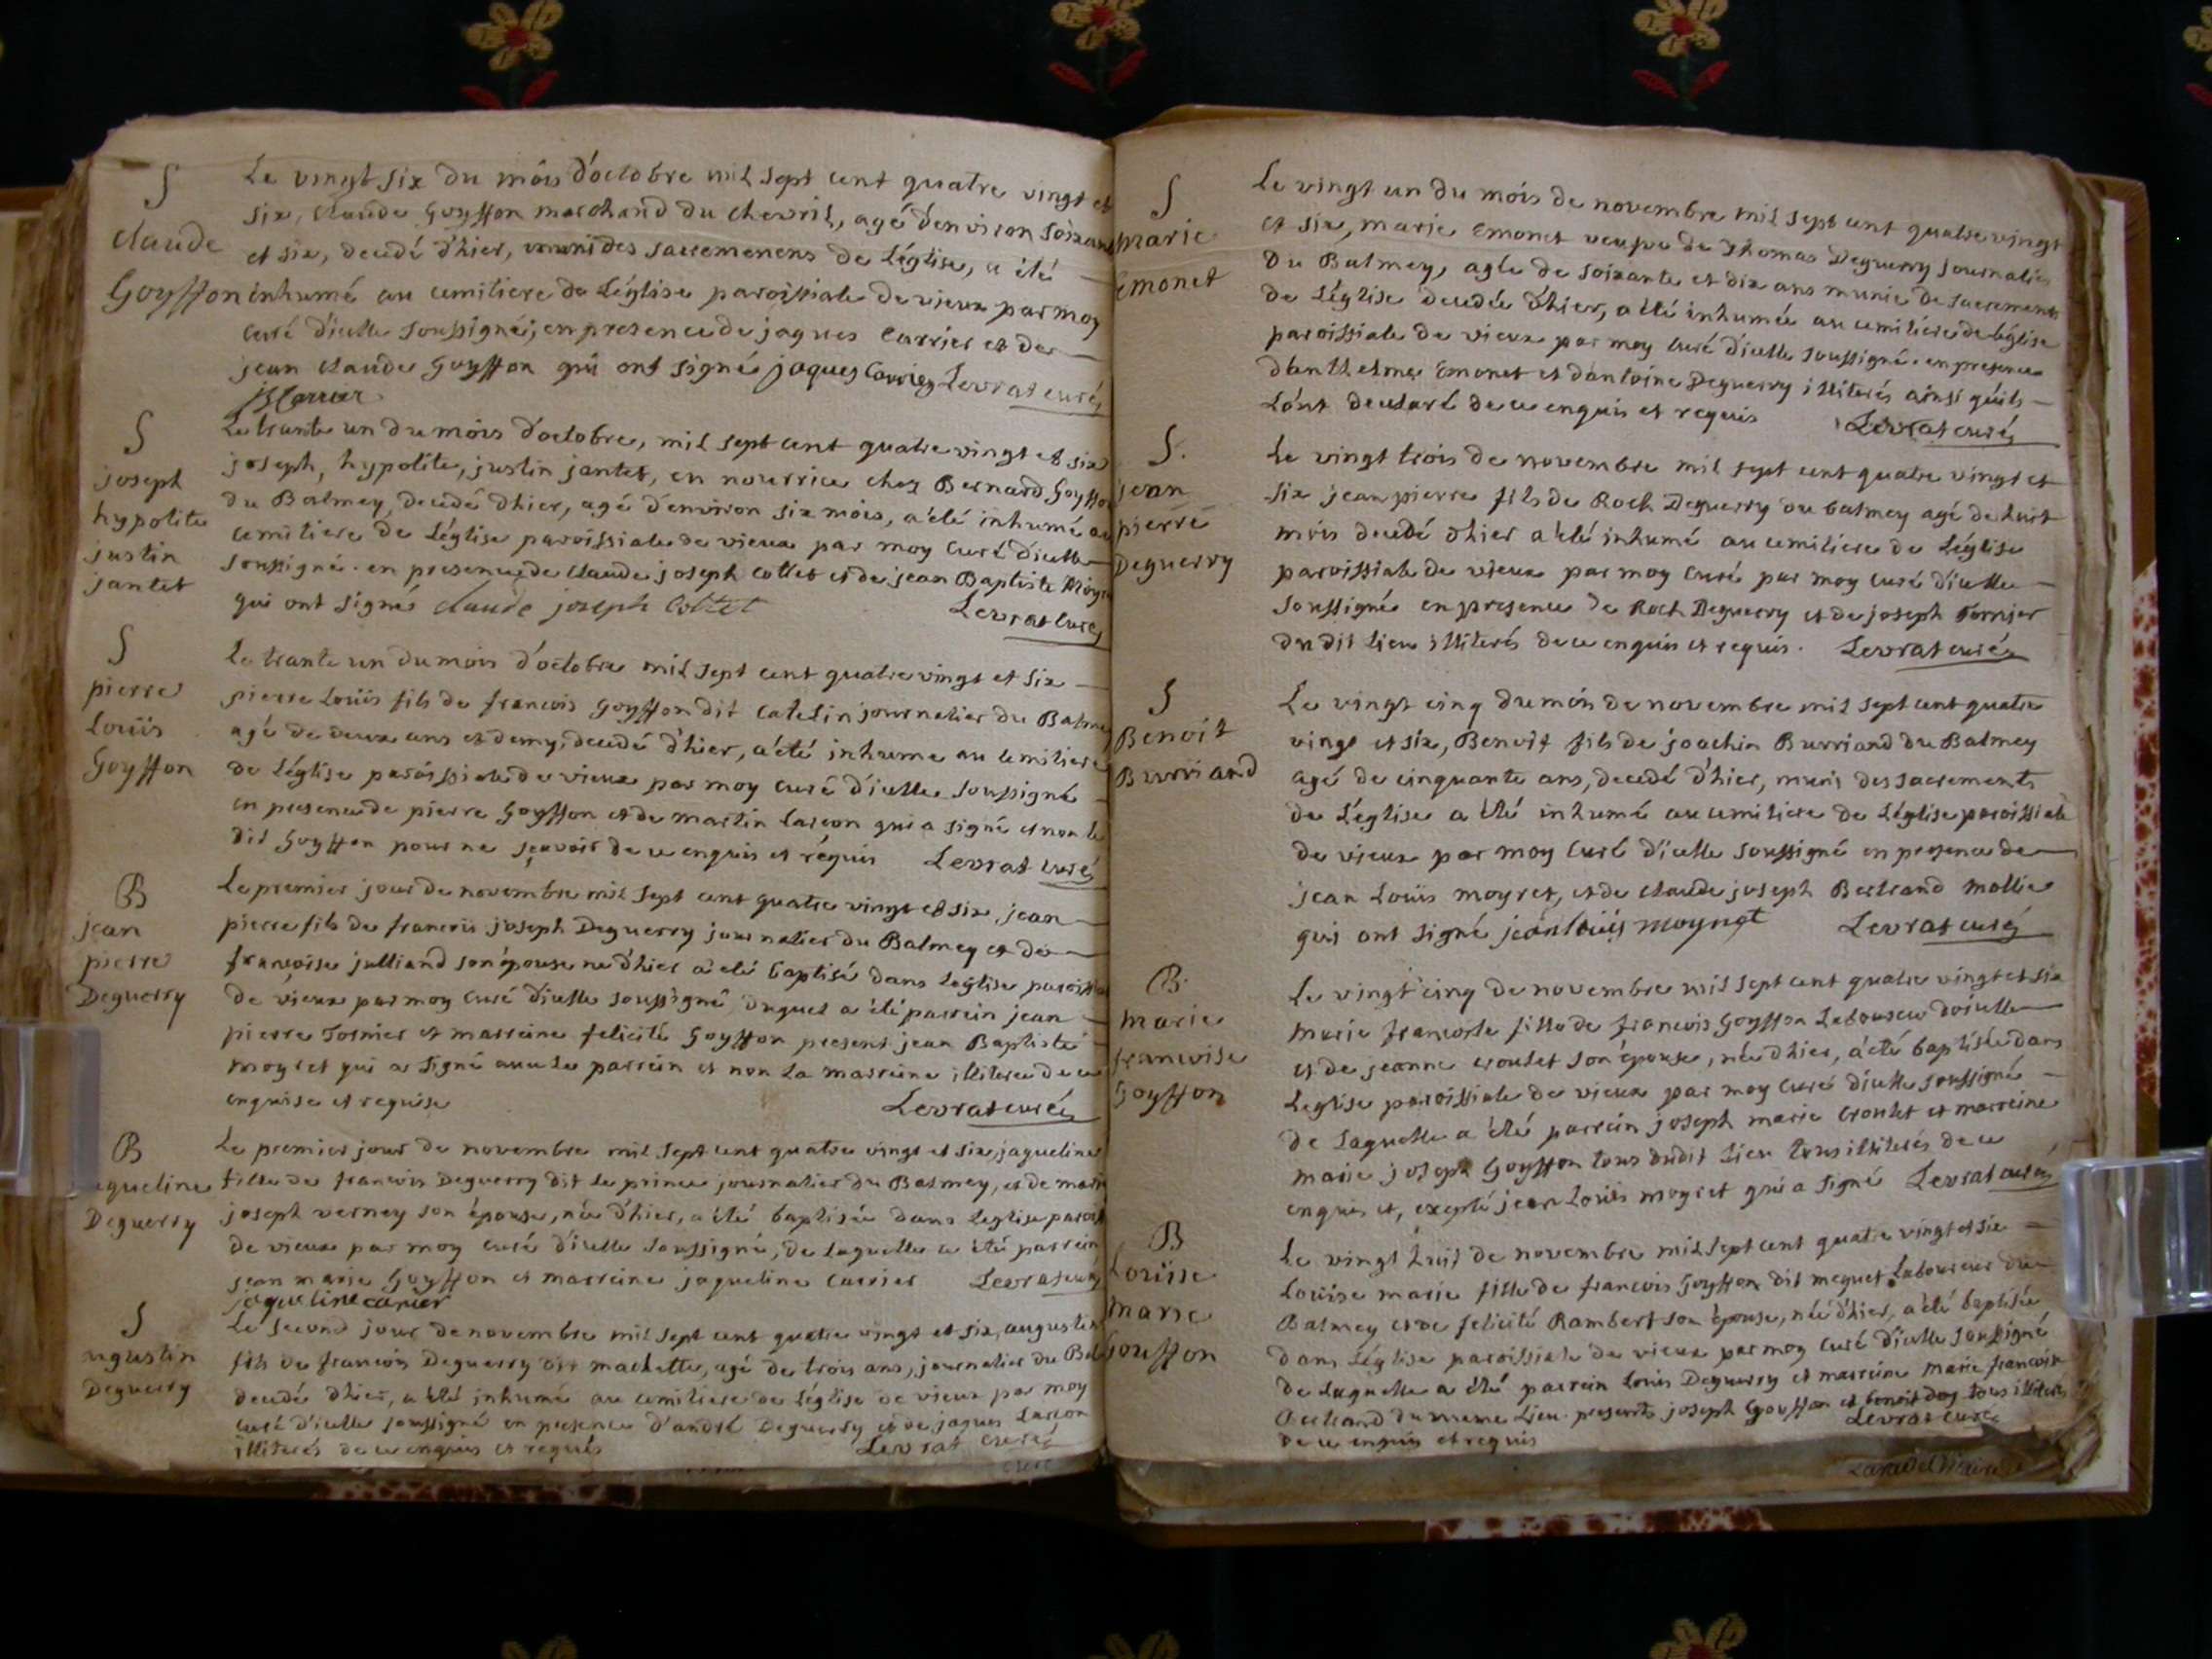 S
Claude
Goyffon
Le vingt six du mois d'octobre mil sept cent quatre vingt et
six, Claude Goyffon marchand du chevril, agé d'environ soixant
et six, decedé d'hier, muni des sacremenens de Léglise, a été
inhumé au cemitiere de Léglise paroissiale de vieux par moy
curé d'icelle soussigné, en presence de jaques Carrier et de
jean Claude Goyffon qui ont signé jaques Carrier Levrat curé
JB Carrier
S
joseph
hypolite
justin
jantet
Le trante un du mois d'octobre, mil sept cent quatre vingt et six
joseph, hypolite, justin jantet, en nourrice chez Bernard Goyffon
du Balmey, decedé d'hier, agé d'environ six mois, a été inhumé au
cemitiere de Léglise paroissiale de vieux par moy curé d'icelle
soussigné. en presence de Claude joseph Collet et de jean Baptiste
qui ont signé Claude joseph Collet Levrat Curé
S
pierre
Loüis
Goyffon
Le trante un du mois d'octobre mil sept cent quatre vingt et six
pierre Loüis fils de francois Goyffon dit Catelin journalier du Balmey
agé de deux ans et demy, decedé d'hier, a été inhume au cemitiere
de Léglise paroissiale de vieux par moy curé d'icelle soussigné
en presence de pierre Goyffon et de martin Larçon qui a signé et non le
dit Goyffon pour ne sçavoir de ce enquis et réquis Levrat curé
B
jean
pierre
Deguerry
Le premier jour de novembre mil sept cent quatre vingt et six, jean
pierre fils de francois joseph Deguerry journalier du Balmey et de
francoise julliand son épouse né d'hier a été baptisé dans Léglise paroissi
de vieux par moy curé d'icelle soussigné duquel a été parrein jean
pierre Tornier et marreine felicité Goyffon present jean Baptiste
moyret qui a signé avec le parrein et non La marreine illiterée de ce
enquise et requise Levrat curé
B
aqueline
Deguerry
Le premier jour de novembre mil sept cent quatre vingt et six, jaqueline
fille de francois Deguerry dit le prince journalier du Balmey, et de marie
joseph verney son épouse, née d'hier, a été baptisée dans Léglise paroiss
de vieux par moy curé d'icelle soussigné, de laquelle a été parrein
jean marie Goyffon et marreine jaqueline Carrier Levrat curé
jaqueline carrier
S
ugustin
Deguerry
Le second jour de novembre mil sept cent quatre vingt et six, augustin
fils de francois Deguerry dit machette, agé de trois ans, journalier du Bal
decedé d'hier, a été inhumé au cemitiere de Léglise de vieux par moy
curé d'icelle soussigné en presence d'andré Deguerry et de jaques Larçon
illiterés de ce enquis et requis Levrat curé
S
marie
Emonet
Le vingt un du mois de novembre mil sept cent quatre vingt
et six, marie Emonet veufve de Thomas Deguerry journalier
du Balmey, agée de soixante et dix ans munie de sacrements
de Léglise decedée d'hier, a été inhumée au cemitiere de Léglise
paroissiale de vieux par moy curé d'icelle soussigné. en presence
d'anthelme Emonet et d'antoine Deguerry illiterés ainsi qu'ils
L'ont declaré de ce enquis et requis Levrat curé
S.
jean
pierre
Deguerry
Le vingt trois de novembre mil sept cent quatre vingt et
six jean pierre fils de Roch Deguerry du balmey agé de huit
mois decedé d'hier a été inhumé au cemitiere de Léglise
paroissiale de vieux par moy curé par moy curé d'icelle
soussigné en presence de Roch Deguerry et de joseph Tornier
du dit lieu illiterés de ce enquis et requis. Levrat curé
S
Benoit
Burriand
Le vingt cinq du mois de novembre mil sept cent quatre
vingt et six, Benoit fils de joachin Burriand du Balmey
agé de cinquante ans, decedé d'hier, muni des sacrements
de Léglise a été inhumé au cemitiere de Léglise paroissiale
de vieux par moy curé d'icelle soussigné en presence de
jean Loüis moyret, et de Claude joseph Bertrand mollie
qui ont signé jean loüis moyret Levrat curé
B.
marie
francoise
Goyffon
Le vingt cinq de novembre mil sept cent quatre vingt et six
marie francoise fille de francois Goyffon Laboureur d'oielle
et de jeanne croulet son épouse, née d'hier, a été baptisée dans
Léglise paroissiale de vieux par moy curé d'icelle soussigné
de Laquelle a été parrein joseph marie Croulet et marreine
marie joseph Goyffon tous dudit Lieu tous illiterés de ce
enquis et, excepté jean Loüis moyret qui a signé Levrat curé
B
Loüise
marie
Gouffon
Le vingt huit de novembre mil sept cent quatre vingt et six
Loüise marie fille de francois Goyffon dit meyuet Laboureur du
Balmey et de felicité Rambert son épouse, née d'hier, a été baptisée
dans Léglise paroissiale de vieux par moy curé d'icelle soussigné
de Laquelle a été parrein Louis Deguerry et marreine marie francoise
Bertrand du meme Lieu. presents joseph Goyffon et benoit dog tous illiterés
de ce enquis et requis Levrat curé